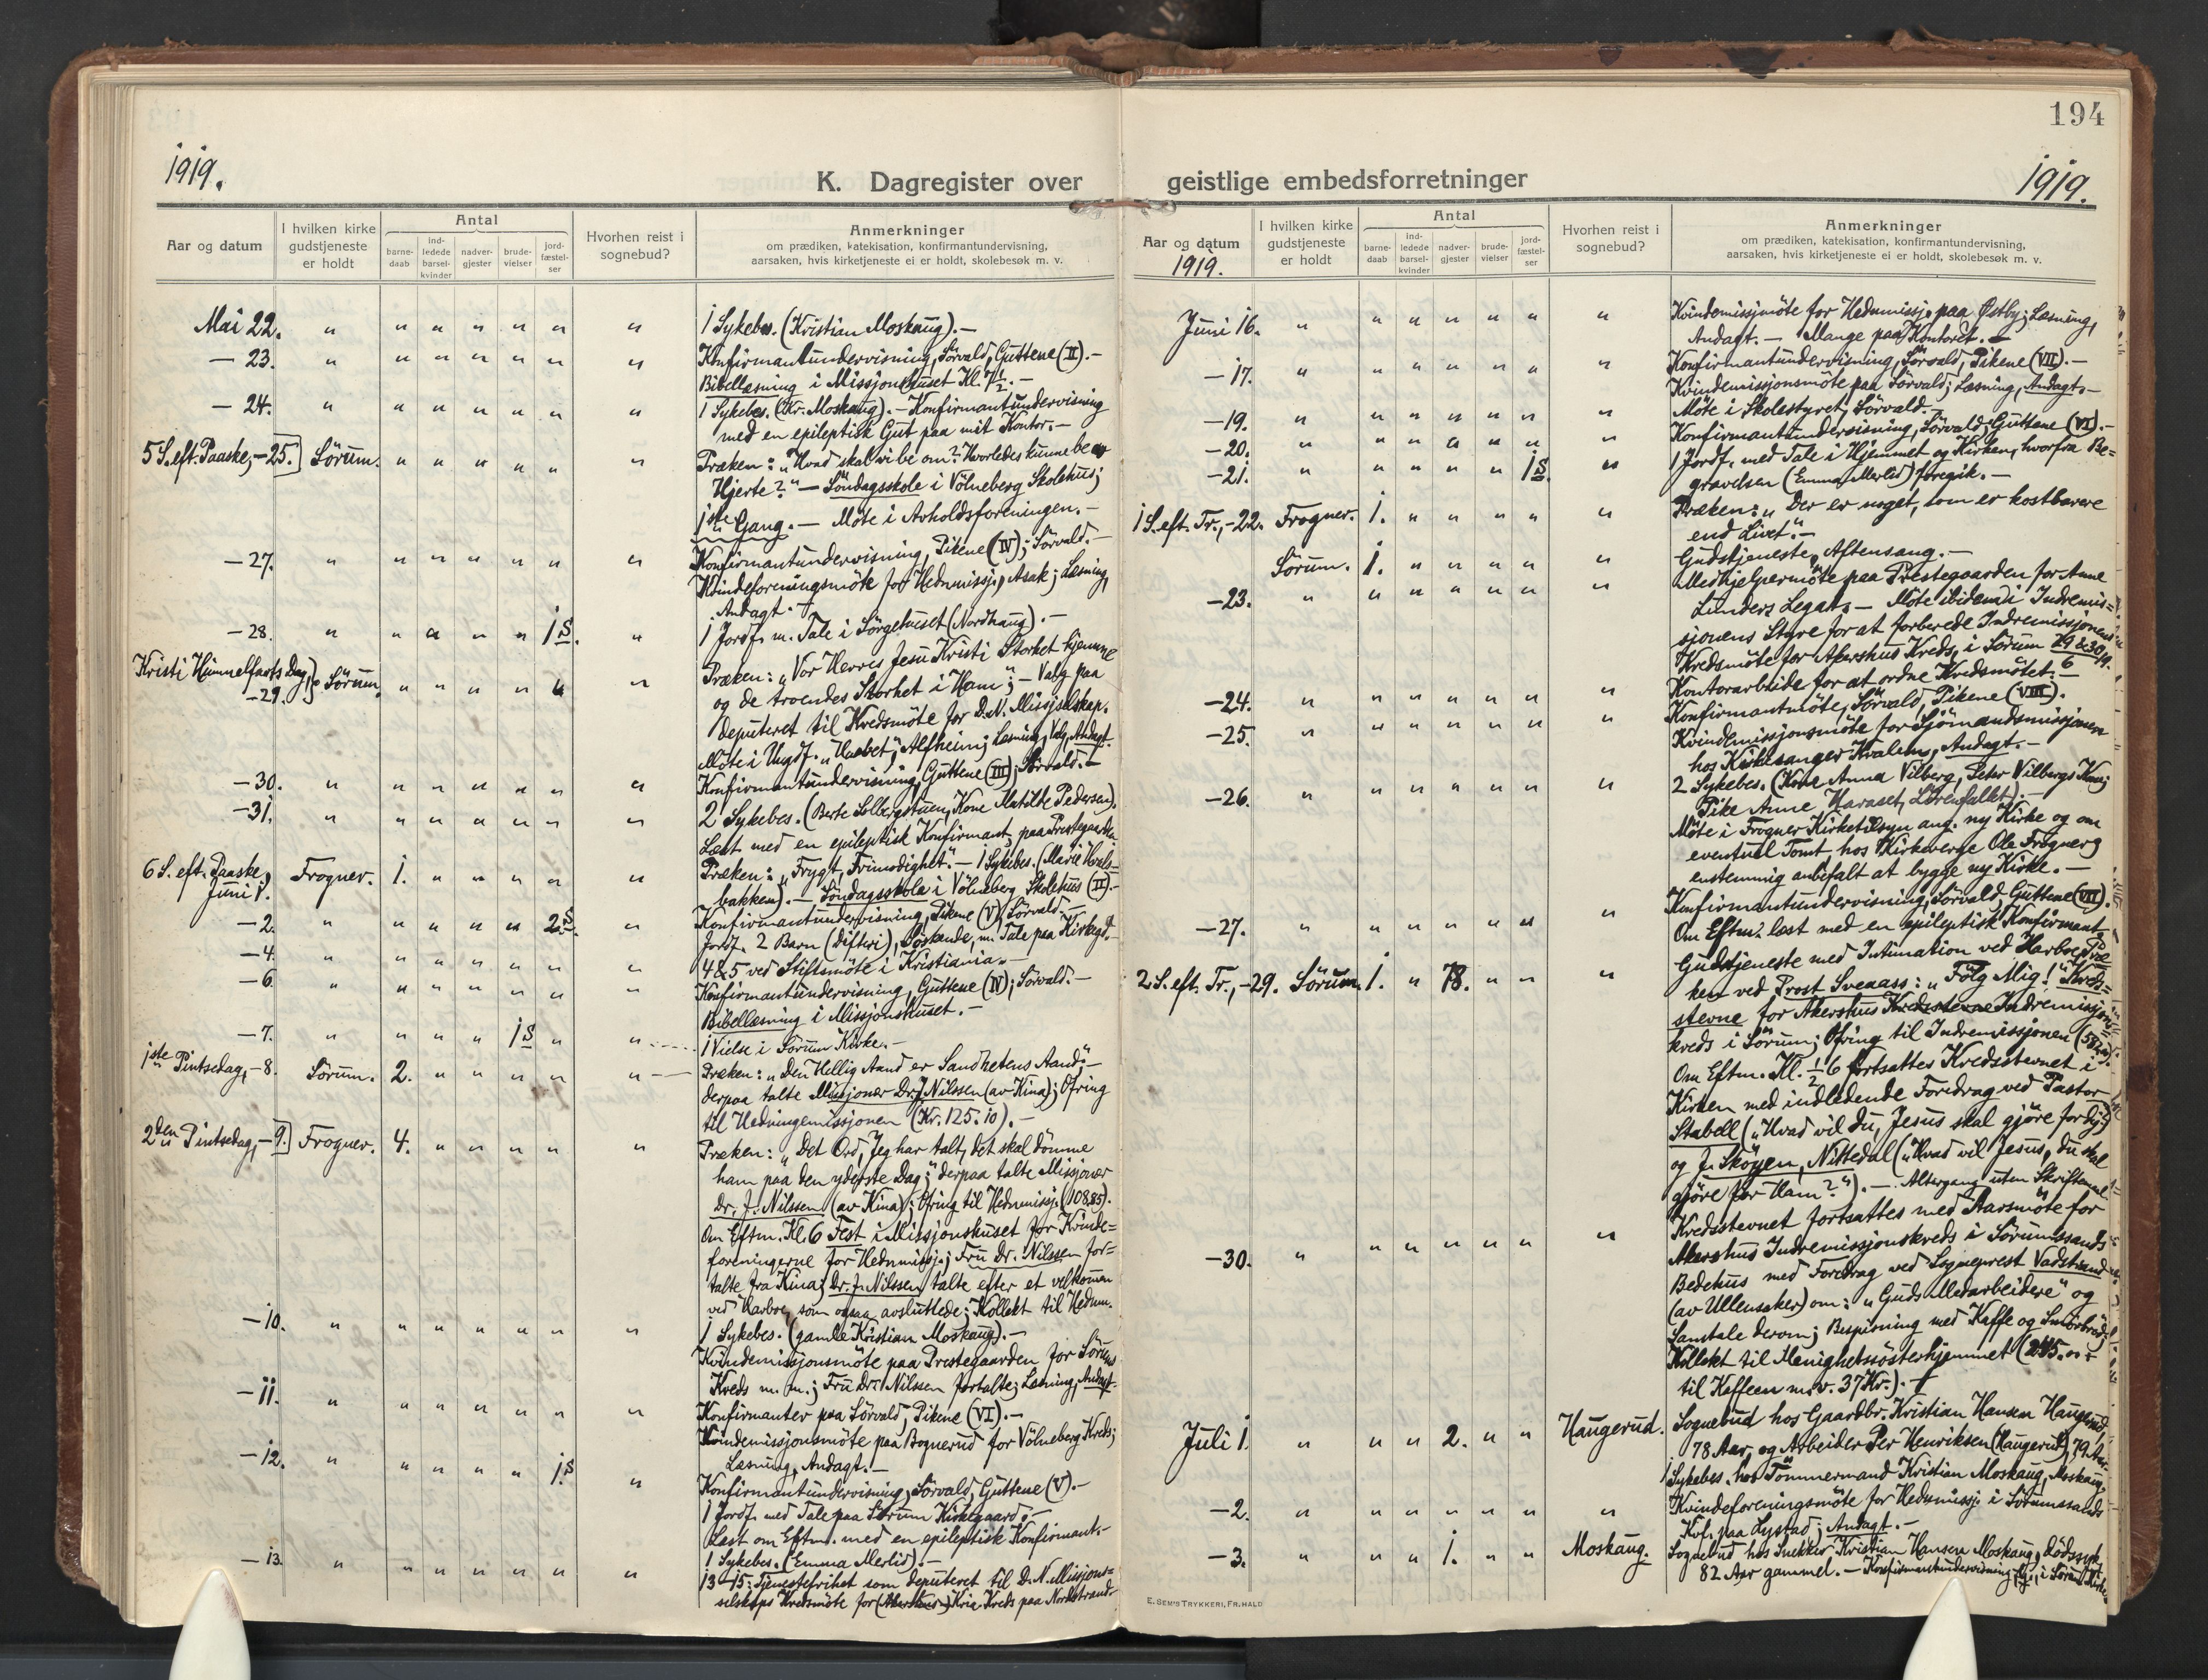 194
1919.
K. Dagregister over
Aar og datum
I hvilken kirke gudstjeneste er holdt
Antal
barne-daab
ind-ledede barsel-kvinder
nadver-gjester
brude-vielser
jord-fæstel-ser
Hvorhen reist i sognebud?
Anmerkninger
om prædiken, katekisation, konfirmantundervisning,
aarsaken, hvis kirketjeneste ei er holdt, skolebesøk m. v.
Mai 22. " " " " " " " 1 Sykebes. (Kristian Moskaug). —
— 23. " " " " " " " Konfirmantundervisning, Sörvald, Guttene (II). —
Bibellæsning i Missjonshuset Kl. 7 1/2. —
— 24. " " " " " " " 1 Sykebes. (Kr. Moskaug). — Konfirmantundervisning
med en epileptisk Gut paa mit Kontor. —
5 S. eft. Paaske, — 25. Sörum. " " " " " " Præken: "Hvad skal vi be om? Hvorledes kunne be av
Hjerte?" — Söndagsskole i Völneberg Skolehus;
1ste Gang. — Möte i Avholdsforeningen. —
— 27. " " " " " " " Konfirmantundervisning, Pikene (IV); Sörvald. —
Kvindeforeningsmöte for Hednmissj., Asak; Læsning,
Andagt. —
— 28. " " " " " 1 S. " 1 Jordf. m. Tale i Sörgehuset (Nordhaug). —
Kristi Himmelfarts Dag, — 29. Sörum. " " " " " " Præken: "Vor Herres Jesu Kristi Storhet hjemme
og de troendes Storhet i Ham"; — Valg paa
deputeret til Kredsmöte for D. N. Missjselskap.
Möte i Ungdf. "Haabet", Alfheim; Læsning, Valg, Andagt.
— 30. " " " " " " " Konfirmantundervisning, Guttene (III); Sörvald. —
— 31. " " " " " " " 2 Sykebes. (Berte Solbergstuen, Kone Matilde Pedersen).
Læst med en epileptisk Konfirmant paa Prestegaarden
6 S. eft. Paaske, Juni 1. Frogner. 1. " " " " " Præken: "Frygt, Frimodighet". — 1 Sykebes. (Marie Hvals-
bakken). — Söndagsskole i Völneberg Skolehus (II). —
— 2. " " " " " 2 S. " Konfirmantundervisning, Pikene (V), Sörvald. —
Jordf. 2 Barn (Difteri), Söskende, m. Tale paa Kirkegd. —
— 4. " " " " " " " 4 & 5 ved Stiftsmöte i Kristiania. —
— 6. " " " " " " " Konfirmantundervisning, Guttene (IV); Sörvald. —
Bibellæsning i Missjonshuset. —
— 7. " " " " 1 S " " 1 Vielse i Sörum Kirke. —
1ste Pintsedag, — 8. Sörum. 2. " " " " " Præken: "Den Hellig Aand er Sandhetens Aand"; —
derpaa talte Missjonær Dr. J. Nilssen (av Kina); Ofring
til Hedningemissjonen (Kr. 125.10). —
2den Pintsedag, — 9. Frogner. 4. " " " " " Præken: "Det Ord, Jeg har talt, det skal dömme
ham paa den yderste Dag"; derpaa talte Missjonær
Dr. J. Nilssen (av Kina); Ofring til Hednmissj. (108.85).
Om Eftm. Kl. 6 Fest i Missjonshuset for Kvinde-
foreningerne for Hednmissj.; Fru Dr. Nilssen for-
talte fra Kina; Dr. J. Nilssen talte efter et velkommen
ved Harboe, som ogsaa avsluttede; Kollekt til Hednm.
— 10. " " " " " " " 1 Sykebes. (gamle Kristian Moskaug). —
Kvindemissjonsmöte paa Prestegaarden for Sörum
Kreds m. m.; Fru Dr. Nilssen fortalte; Læsning, Andagt.
— 11. " " " " " " " Konfirmanter paa Sörvald, Pikene (VI). —
Kvindemissjonsmöte paa Bognerud for Völneberg Kreds;
Læsning, Andagt. —
— 12. " " " " " 1 S " Konfirmantundervisning, Sörvald, Guttene (V). —
1 Jordf. med Tale paa Sörum Kirkegaard. —
Læst om Eftm. med en epileptisk Konfirmant. —
— 13. " " " " " " " 1 Sykebes. (Emma Merlid). —
13–15: Tjenestefrihet som deputeret til D. N. Missjons-
selskaps Kredsmöte for (Akershus) Kria Kreds paa Nordstrand.
1919.
geistlige embedsforretninger
Aar og datum
1919.
I hvilken kirke gudstjeneste er holdt
Antal
barne-daab
ind-ledede barsel-kvinder
nadver-gjester
brude-vielser
jord-fæstel-ser
Hvorhen reist i sognebud?
Anmerkninger
om prædiken, katekisation, konfirmantundervisning,
aarsaken, hvis kirketjeneste ei er holdt, skolebesøk m. v.
Juni 16. " " " " " " " Kvindemissjmöte for Hednmissj. paa Østby; Læsning,
Andagt. — Mange paa Kontoret. —
— 17. " " " " " " " Konfirmantundervisning, Sörvald, Pikene (VII). —
Kvindemissjonsmöte paa Sörvald; Læsning, Andagt. —
— 19. " " " " " " " Möte i Skolestyret, Sörvald. —
— 20. " " " " " " " Konfirmantundervisning, Sörvald, Guttene (VI). —
— 21. " " " " " 1 S. " 1 Jordf. med Tale i Hjemmet og Kirken, hvorfra Be-
gravelsen (Emma Merlid) foregik. —
1 S. eft. Tr., — 22. Frogner. 1. " " " " " Præken: "Der er noget, som er kostbarere
end Livet". —
Sörum. 1. " " " " " Gudstjeneste, Aftensang. —
— 23. " " " " " " " Medhjelpermöte paa Prestegaarden for Anne
Linders Legat. — Möte ibidem i Indremis-
sjonens Styre for at forberede Indremissjonens
Kredsmöte for Akershus Kreds, i Sörum 29 & 30/6 19.
— 24. " " " " " " " Kontorarbeide for at ordne Kredsmötet. —
— 25. " " " " " " " Konfirmantmöte, Sörvald, Pikene (VIII).
Kvindemissjonsmöte for Sjömandsmissjonen
hos Kirkesanger Kvalem, Andagt. —
— 26. " " " " " " " 2 Sykebes. (Kone Anna Vilberg, Peter Vilbergs Kone;
Pike Anne Haraset, Lörenfallet). —
Möte i Frogner Kirketilsyn ang. ny Kirke og om
eventuel Tomt hos Kirkeverge Ole Frogner;
enstemmig anbefalt at bygge ny Kirke. —
— 27. " " " " " " " Konfirmantundervisning, Sörvald, Guttene (VII).
Om Eftm. læst med en epileptisk Konfirmant.
2 S. eft. Tr., — 29. Sörum. 1. " 78. " " " Gudstjeneste med Intimation ved Harboe, Præ-
ken ved Prost Sveaass: "Fölg Mig!" Kreds-
stevne for Akershus Indremissjons-
kreds i Sörum; Ofring til Indremissjonen
Om Eftm. Kl. 1/2 6 fortsattes Kredsstevnet i
Kirken med indledende Foredrag ved Pastor
Stabell ("Hvad vil du, Jesus skal gjöre for dig?")
og J. Sköyen, Nittedal ("Hvad vil Jesus, du skal
gjöre for Ham?"). — Altergang uten Skriftemaal
— 30. " " " " " " " Kredsstevnet fortsattes med Aarsmöte for
Akershus Indremissjonskreds i Sörumssands
Bedehus med Foredrag ved Sogneprest Vadstrand
(av Ullensaker) om: "Guds Medarbeidere" og
Samtale derom; Bespisning med Kaffe og Smörbröd;
Kollekt til Menighetssösterhjemmet (245.00 +
til Kaffeen m. v. 37 Kr.). —
Juli 1. " " " 2. " " Haugerud. Sognebud hos Gaardbr. Kristian Hansen Haugerud,
78 Aar, og Arbeider Per Henriksen (Haugerud), 79 Aar.
1 Sykebes. hos Tömmermand Kristian Moskaug, Moskaug.
— 2. " " " " " " " Kvindeforeningsmöte for Hednmissj. i Sörumssands
Kvf. paa Lystad; Andagt. —
— 3. " " " 1. " " Moskaug. Sognebud hos Snekker Kristian Hansen Moskaug, dödssyk,
82 Aar gammel. — Konfirmantundervisning, i Sörum Kirke
E. SEMS TRYKKERI, FR.HALD